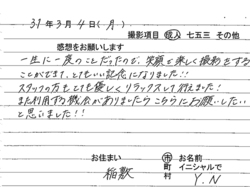 31年3月4日(月)
撮影項目 成人 七五三 その他
感想をお願いします
一生に一度のことだったので、笑顔で楽しく撮影をする
ことができて、とてもいい記念になりました!!
スタッフの方もとても優しくリラックスして行えました!
また利用する機会がありましたらこちらにお願いしたい
と思いました!!
お住まい 市 お名前
稲敷 町 イニシャルで
村 Y.N